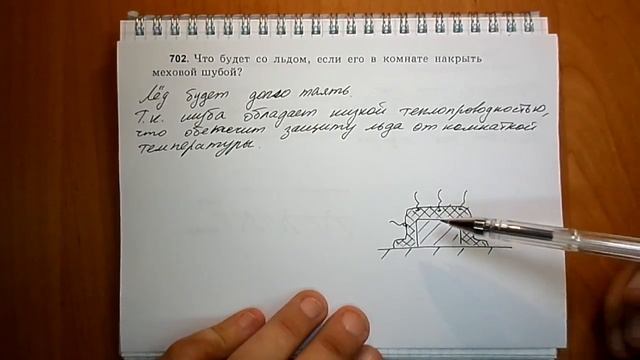 702. Что будет со льдом, если его в комнате накрыть
меховой шубой?
Лёд будет долго таять.
Т.к. шуба обладает низкой теплопроводностью,
что обеспечит защиту льда от комнатной
температуры.